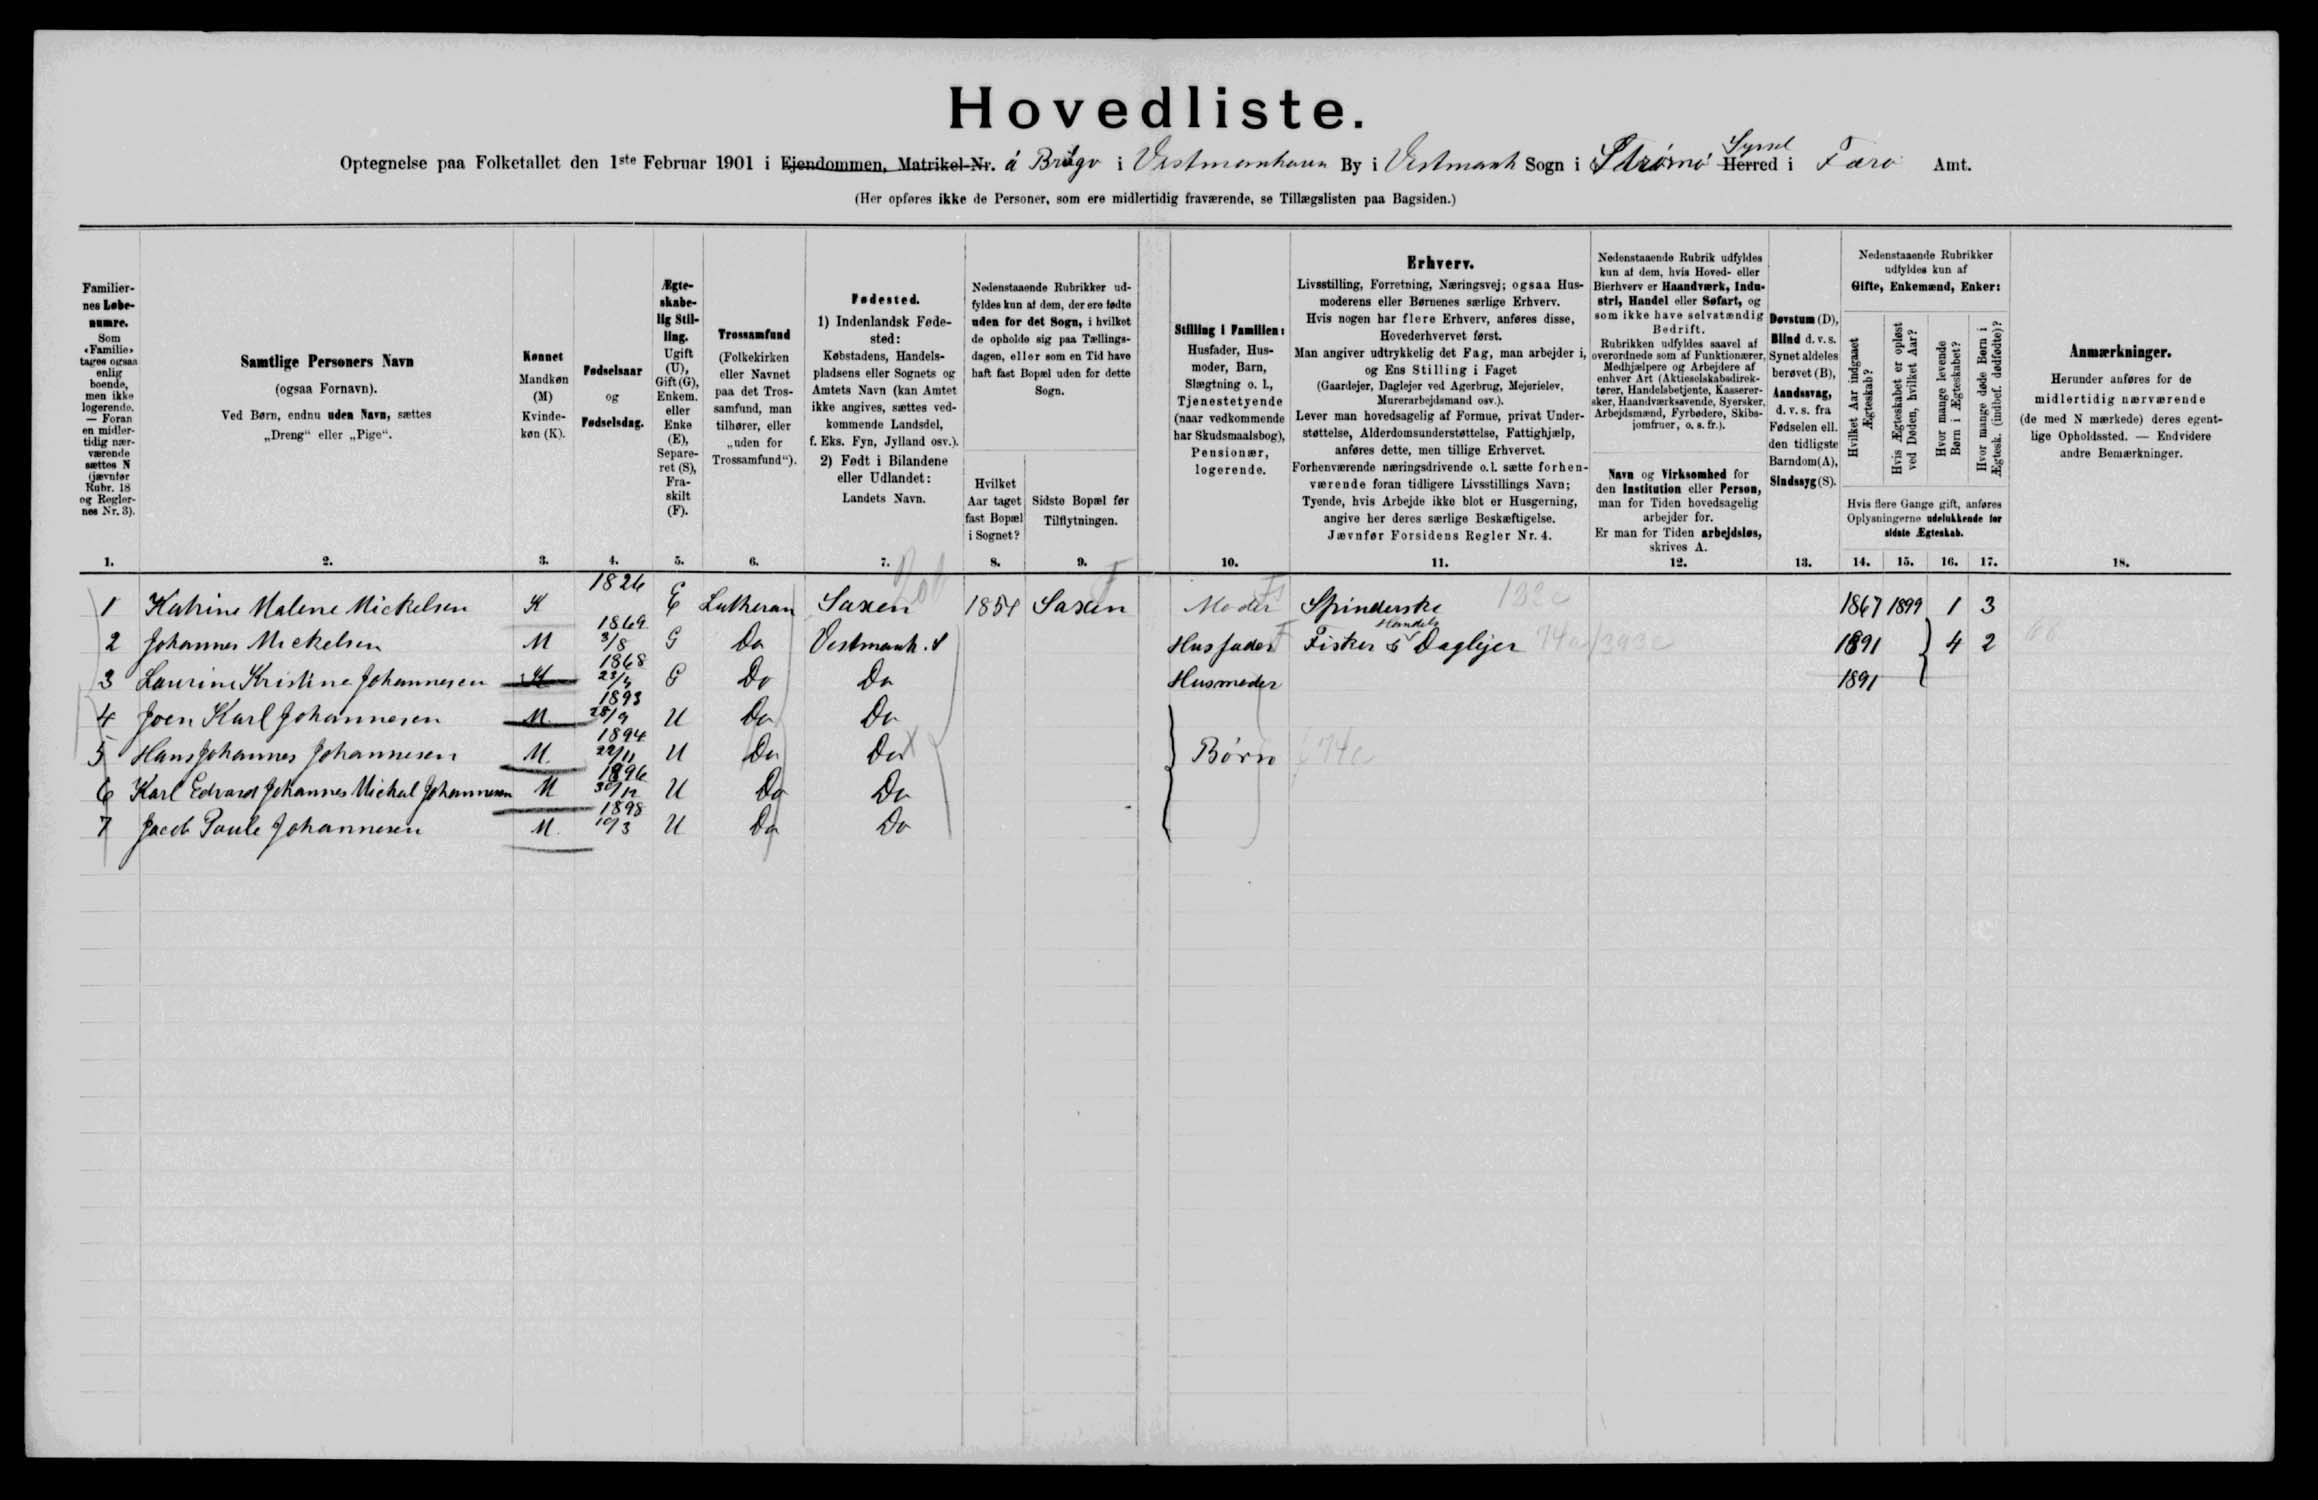 Hovedliste.
Optegnelse paa Folketallet den 1ste Februar 1901 i Ejendommen, Matrikel-Nr. á i Vestmanhavn By i Vestmanh Sogn i Strømø Herred Syssel i Færø Amt.
(Her opføres ikke de Personer, som ere midlertidig fraværende, se Tillægslisten paa Bagsiden.)
Familiernes Løbenumre.
Som «Familie» tages ogsaa enlig boende, men ikke logerende. — Foran en midlertidig nærværende sættes N (jævnfør Rubr. 18 og Reglernes Nr. 3).
Samtlige Personers Navn
(ogsaa Fornavn).
Ved Børn, endnu uden Navn, sættes
„Dreng“ eller „Pige“.
Kønnet
Mandkøn (M)
Kvindekøn (K).
Fødselsaar
og
Fødselsdag.
Ægteskabelig Stilling.
Ugift (U), Gift (G), Enkem. eller Enke (E), Separeret (S), Fraskilt (F).
Trossamfund
(Folkekirken eller Navnet paa det Trossamfund, man tilhører, eller „uden for Trossamfund“).
Fødested.
1) Indenlandsk Fødested:
Købstadens, Handelspladsens eller Sognets og Amtets Navn (kan Amtet ikke angives, sættes vedkommende Landsdel, f. Eks. Fyn, Jylland osv.).
2) Født i Bilandene eller Udlandet:
Landets Navn.
Nedenstaaende Rubrikker udfyldes kun af dem, der ere fødte uden for det Sogn, i hvilket de opholde sig paa Tællingsdagen, eller som en Tid have haft fast Bopæl uden for dette Sogn.
Hvilket Aar taget fast Bopæl i Sognet?
Sidste Bopæl før Tilflytningen.
Stilling i Familien:
Husfader, Husmoder, Barn, Slægtning o. l., Tjenestetyende (naar vedkommende har Skudsmaalsbog), Pensionær, logerende.
Erhverv.
Livsstilling, Forretning, Næringsvej; ogsaa Husmoderens eller Børnenes særlige Erhverv.
Hvis nogen har flere Erhverv, anføres disse, Hovederhvervet først.
Man angiver udtrykkelig det Fag, man arbejder i, og Ens Stilling i Faget
(Gaardejer, Daglejer ved Agerbrug, Mejerielev, Murerarbejdsmand osv.).
Lever man hovedsagelig af Formue, privat Understøttelse, Alderdomsunderstøttelse, Fattighjælp, anføres dette, men tillige Erhvervet.
Forhenværende næringsdrivende o. l. sætte forhenværende foran tidligere Livsstillings Navn;
Tyende, hvis Arbejde ikke blot er Husgerning, angive her deres særlige Beskæftigelse.
Jævnfør Forsidens Regler Nr. 4.
Nedenstaaende Rubrik udfyldes kun af dem, hvis Hoved- eller Bierhverv er Haandværk, Industri, Handel eller Søfart, og som ikke have selvstændig Bedrift.
Rubrikken udfyldes saavel af overordnede som af Funktionærer, Medhjælpere og Arbejdere af enhver Art (Aktieselskabsdirektører, Handelsbetjente, Kasserersker, Haandværkssvende, Syersker, Arbejdsmænd, Fyrbødere, Skibsjomfruer, o. s. fr.).
Navn og Virksomhed for den Institution eller Person, man for Tiden hovedsagelig arbejder for.
Er man for Tiden arbejdsløs, skrives A.
Døvstum (D), Blind d. v. s. Synet aldeles berøvet (B), Aandssvag, d. v. s. fra Fødselen ell. den tidligste Barndom (A), Sindssyg (S).
Nedenstaaende Rubrikker udfyldes kun af
Gifte, Enkemænd, Enker:
Hvilket Aar indgaaet Ægteskab?
Hvis Ægteskabet er opløst ved Døden, hvilket Aar?
Hvor mange levende Børn i Ægteskabet?
Hvor mange døde Børn i Ægtesk. (indbef. dødfødte)?
Hvis flere Gange gift, anføres Oplysningerne udelukkende for sidste Ægteskab.
Anmærkninger.
Herunder anføres for de midlertidig nærværende (de med N mærkede) deres egentlige Opholdssted. — Endvidere andre Bemærkninger.
1. 2. 3. 4. 5. 6. 7. 8. 9. 10. 11. 12. 13. 14. 15. 16. 17. 18.
1 Katrine Malene Mickelsen K 1826 E Lutheran Saxen 1854 Saxen Moder Spinderske 1867 1899 1 3
2 Johannes Mickelsen M 1869 3/8 G Do Vestmanh. S Husfader Fisker & Handels Daglejer 1891 4 2
3 Laurine Kristine Johannesen K 1868 G Do Do Husmoder 1891
4 Joen Karl Johannesen M 1893 28/9 U Do Do
5 Hans Johannes Johannesen M. 1894 22/11 U Do Do Børn
6 Karl Edvard Johannes Michal Johannesen M 1896 30/12 U Do Do
7 Jacob Paule Johannesen M. 1898 10/3 U Do Do